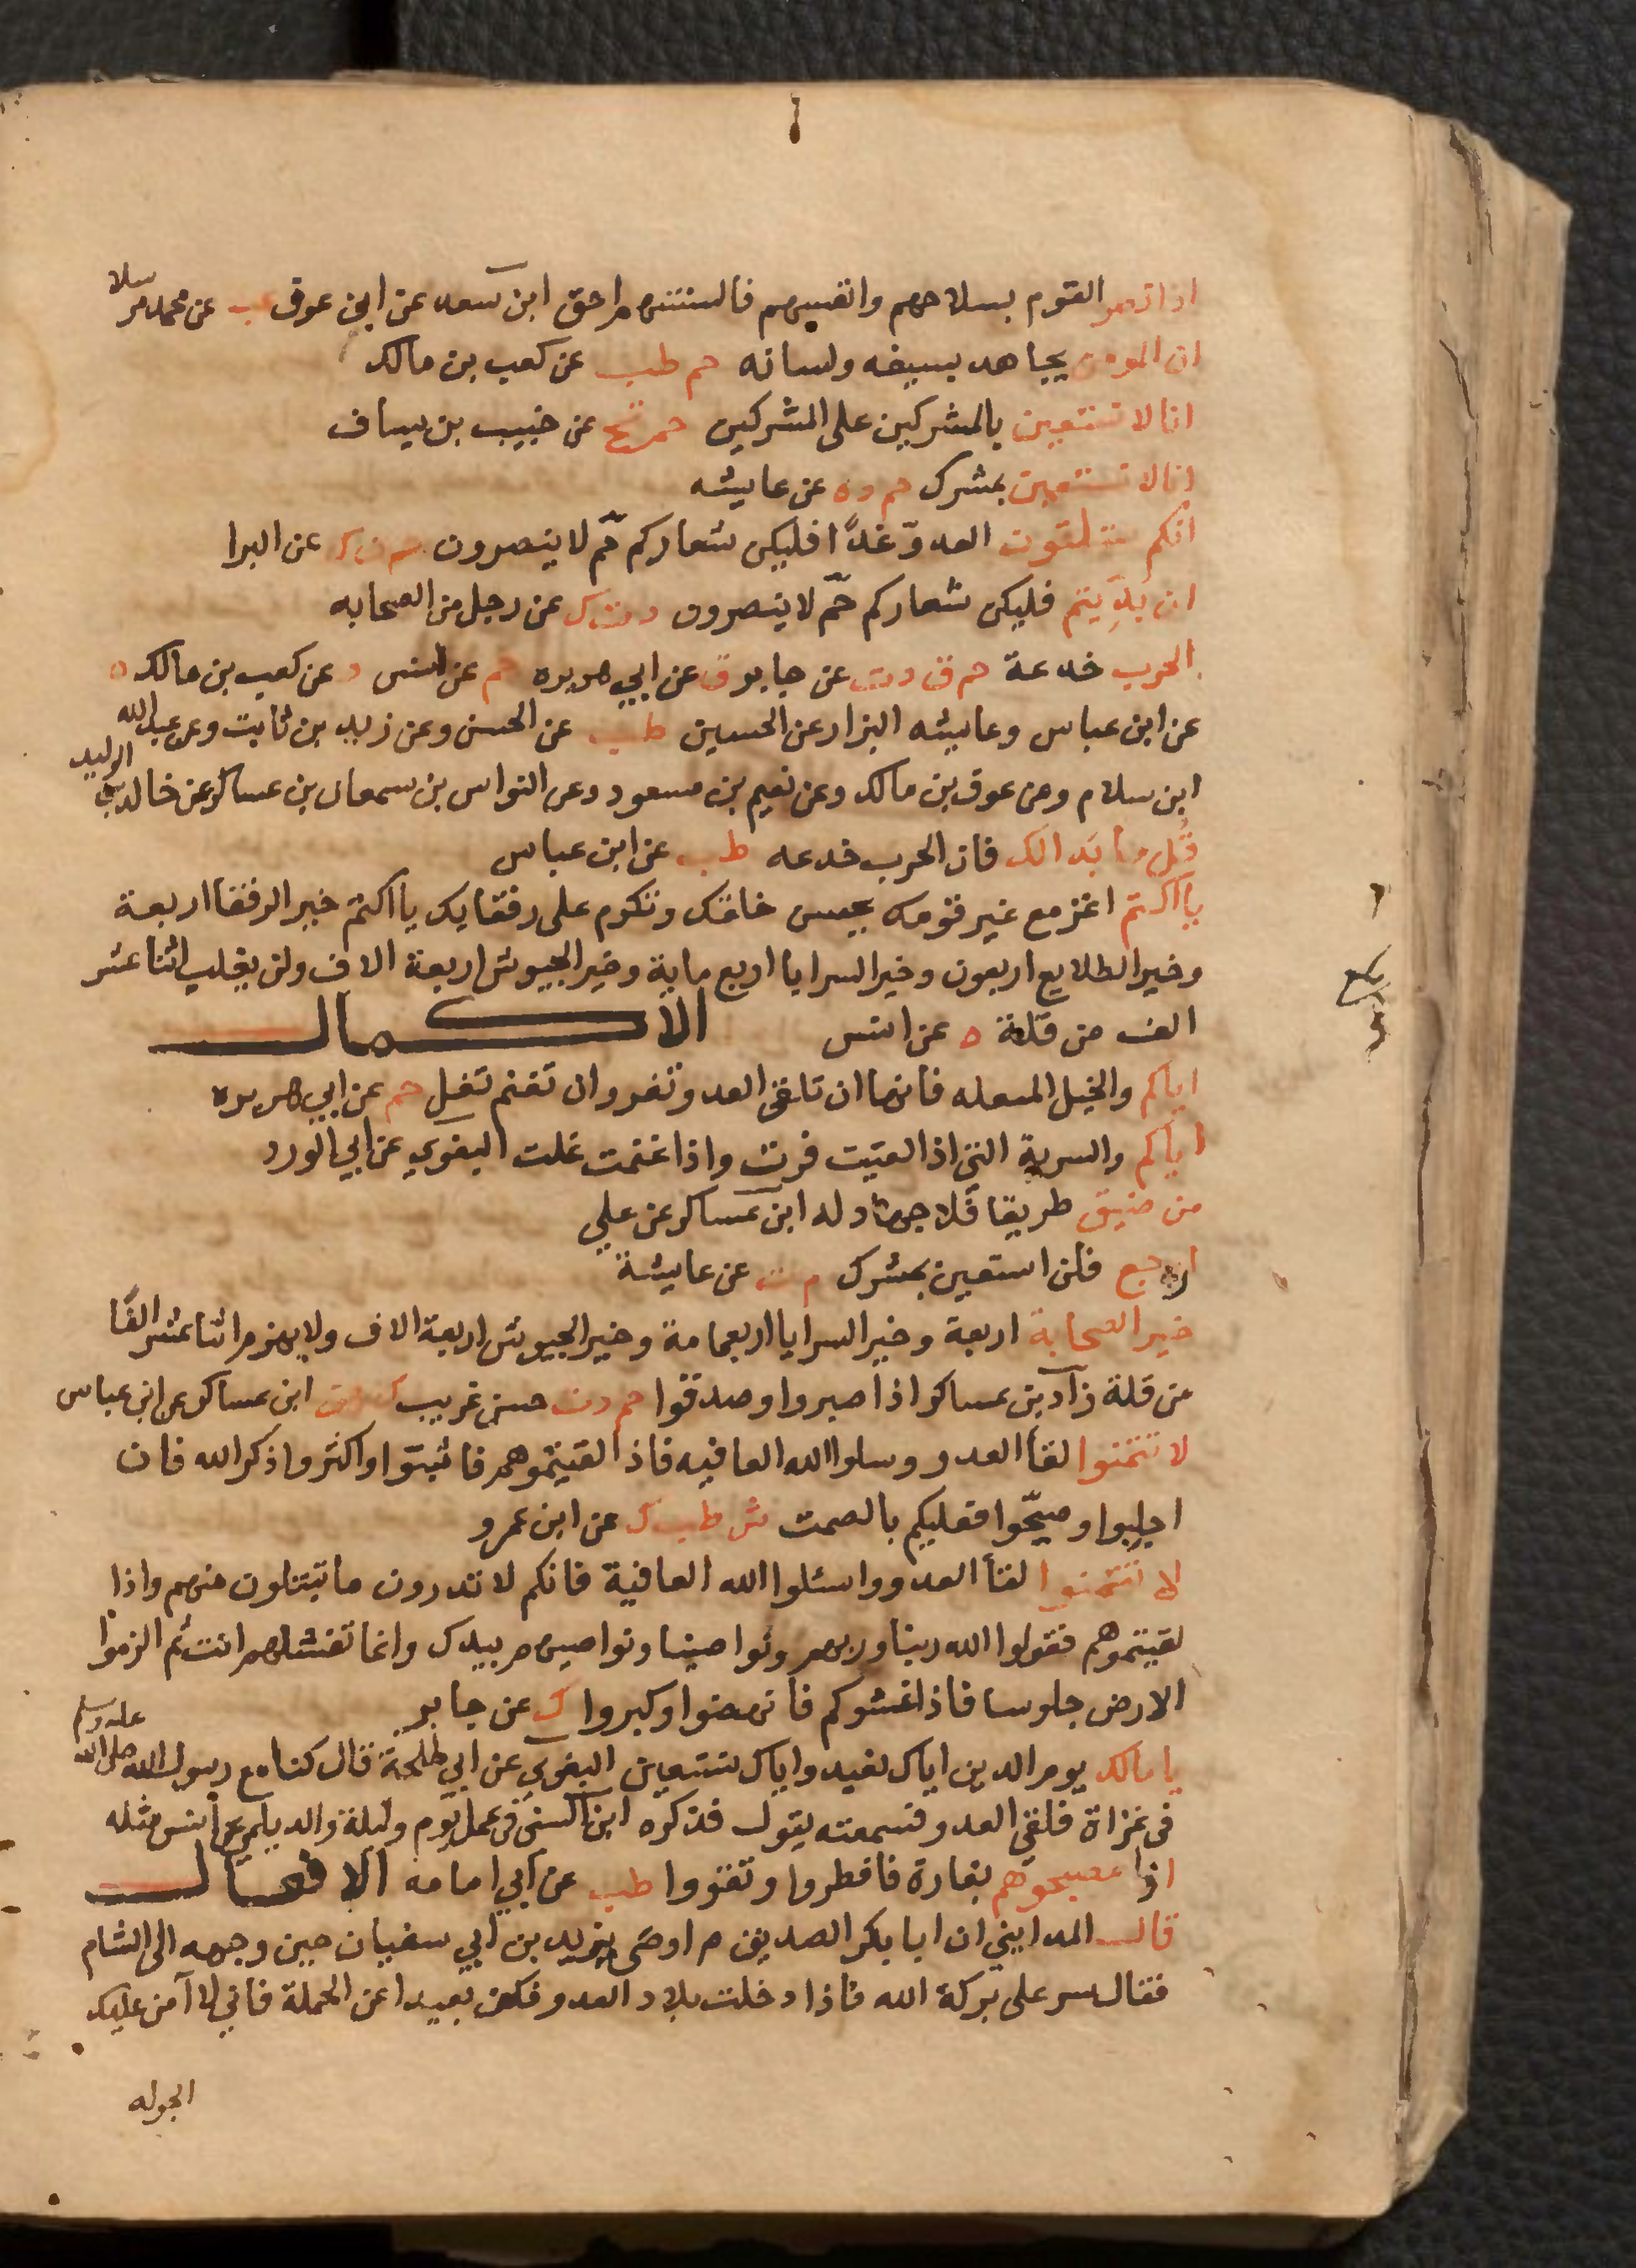 اذا نصر القوم بسلاحهم وانفسهم فالسنتهم احق ابن سعد عن ابن عوف عن محمد مرسلا
ان المومن يجاهد بسيفه ولسانه حم طب عن كعب بن مالك
انا لا نستعين بالمشركين على المشركين حم تخ عن خبيب بن يساف
انا لا نستعين بمشرك حم د ه عن عايشه
انكم ستلقون العدوّ غدًا فليكن شعاركم حّم لا ينصرون حم ن ك عن البرا
ان بُيِّتم فليكن شعاركم حّم لا ينصرون د ت ك عن رجل من الصحابه
الحرب خدعة حم ق د ت عن جابر ق عن ابي هريره حم عن انس د عن كعب بن مالك ه
عن ابن عباس وعايشه البزار عن الحسين طب عن الحسن وعن زيد بن ثابت وعن عبد الله
ابن سلام وعن عوف بن مالك وعن نعيم بن مسعود وعن النواس بن سمعان بن عساكر عن خالد بن الوليد
قُل ما بَدا لك فان الحرب خدعه طب عن ابن عباس
يا اكثم اغز مع غير قومك يحسن خلقك وتكرم على رفقايك يا اكثم خير الرفقا اربعة
وخير الطلايع اربعون وخير السرايا اربع ماية وخير الجيوش اربعة الاف ولن يغلب اثنا عشر
الف من قلة ه عن انس الاكمال
اياكم والخيل المنفله فانها ان تلقى العدو تفر وان تغنم تغلل حم عن ابي هريره
اياكم والسرية التي اذا لقيت فرت واذا غنمت غلت البغوي عن ابي الورد
من ضيق طريقا فلا جهاد له ابن عساكر عن علي
ارجع فلن استعين بمشرك م ت عن عايشة
خير الصحابة اربعة وخير السرايا اربعماية وخير الجيوش اربعة الاف ولا يهزم اثنا عشر الفًا
من قلة زاد بن عساكر اذا صبروا وصدقوا حم د ت حسن غريب ك ق ابن عساكر عن ابن عباس
لا تتمنوا لقأ العدو وسلوا الله العافيه فاذا لقيتموهم فاثبتوا واكثروا ذكر الله فان
اجلبوا وصيّحوا فعليكم بالصمت ش طب ك عن ابن عمرو
لا تتمنوا لقأ العدو واسئلوا الله العافية فانكم لا تدرون ما تبتلون منهم واذا
لقيتموهم فقولوا الله ربنا وربهم ونواصينا ونواصيهم بيدك وانما تقتلهم انت ثم الزموا
الارض جلوسا فاذا غشوكم فانهضوا وكبروا ك عن جابر
يا مالك يوم الدين اياك نعبد واياك نستعين البغوي عن ابي طلحة قال كنا مع رسول الله صلى الله عليه وسلم
في غزاة فلقي العدو فسمعته يقول فذكره ابن السني في عمل يوم وليلة والديلمي عن انس مثله
اذا صبحتموهم بغارة فافطروا وتقووا طب عن ابي امامه الافعال
قال المدايني ان ابا بكر الصديق م اوصى يزيد بن ابي سفيان حين وجهه الى الشام
فقال سر على بركة الله فاذا دخلت بلاد العدو فكن بعيدا عن الحملة فاني لا آمن عليك
الجوله